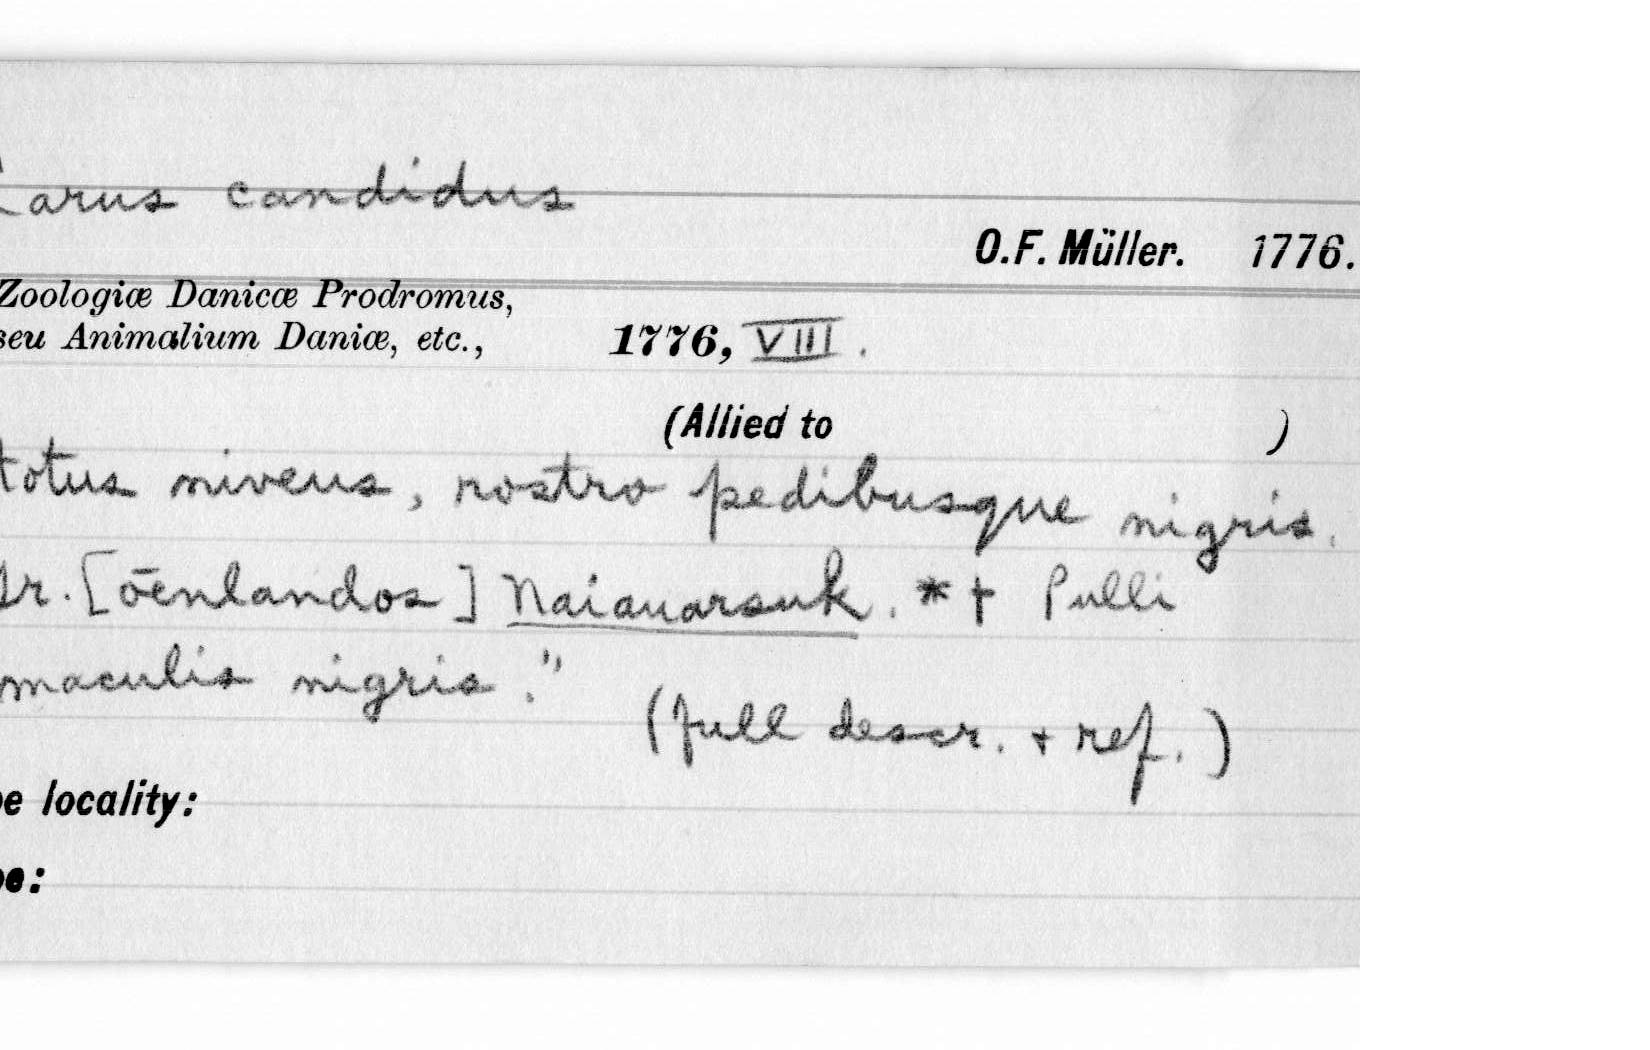 Larus candidus
O.F. Müller. 1776.
Zoologiæ Danicæ Prodromus,
seu Animalium Daniæ, etc., 1776, VIII.
(Allied to )
totus niveus, rostro pedibusque nigris.
Gr. [öenlandos] Naiauarsuk. *† Pulli
maculis nigris."
(full descr. + ref.)
pe locality:
pe: